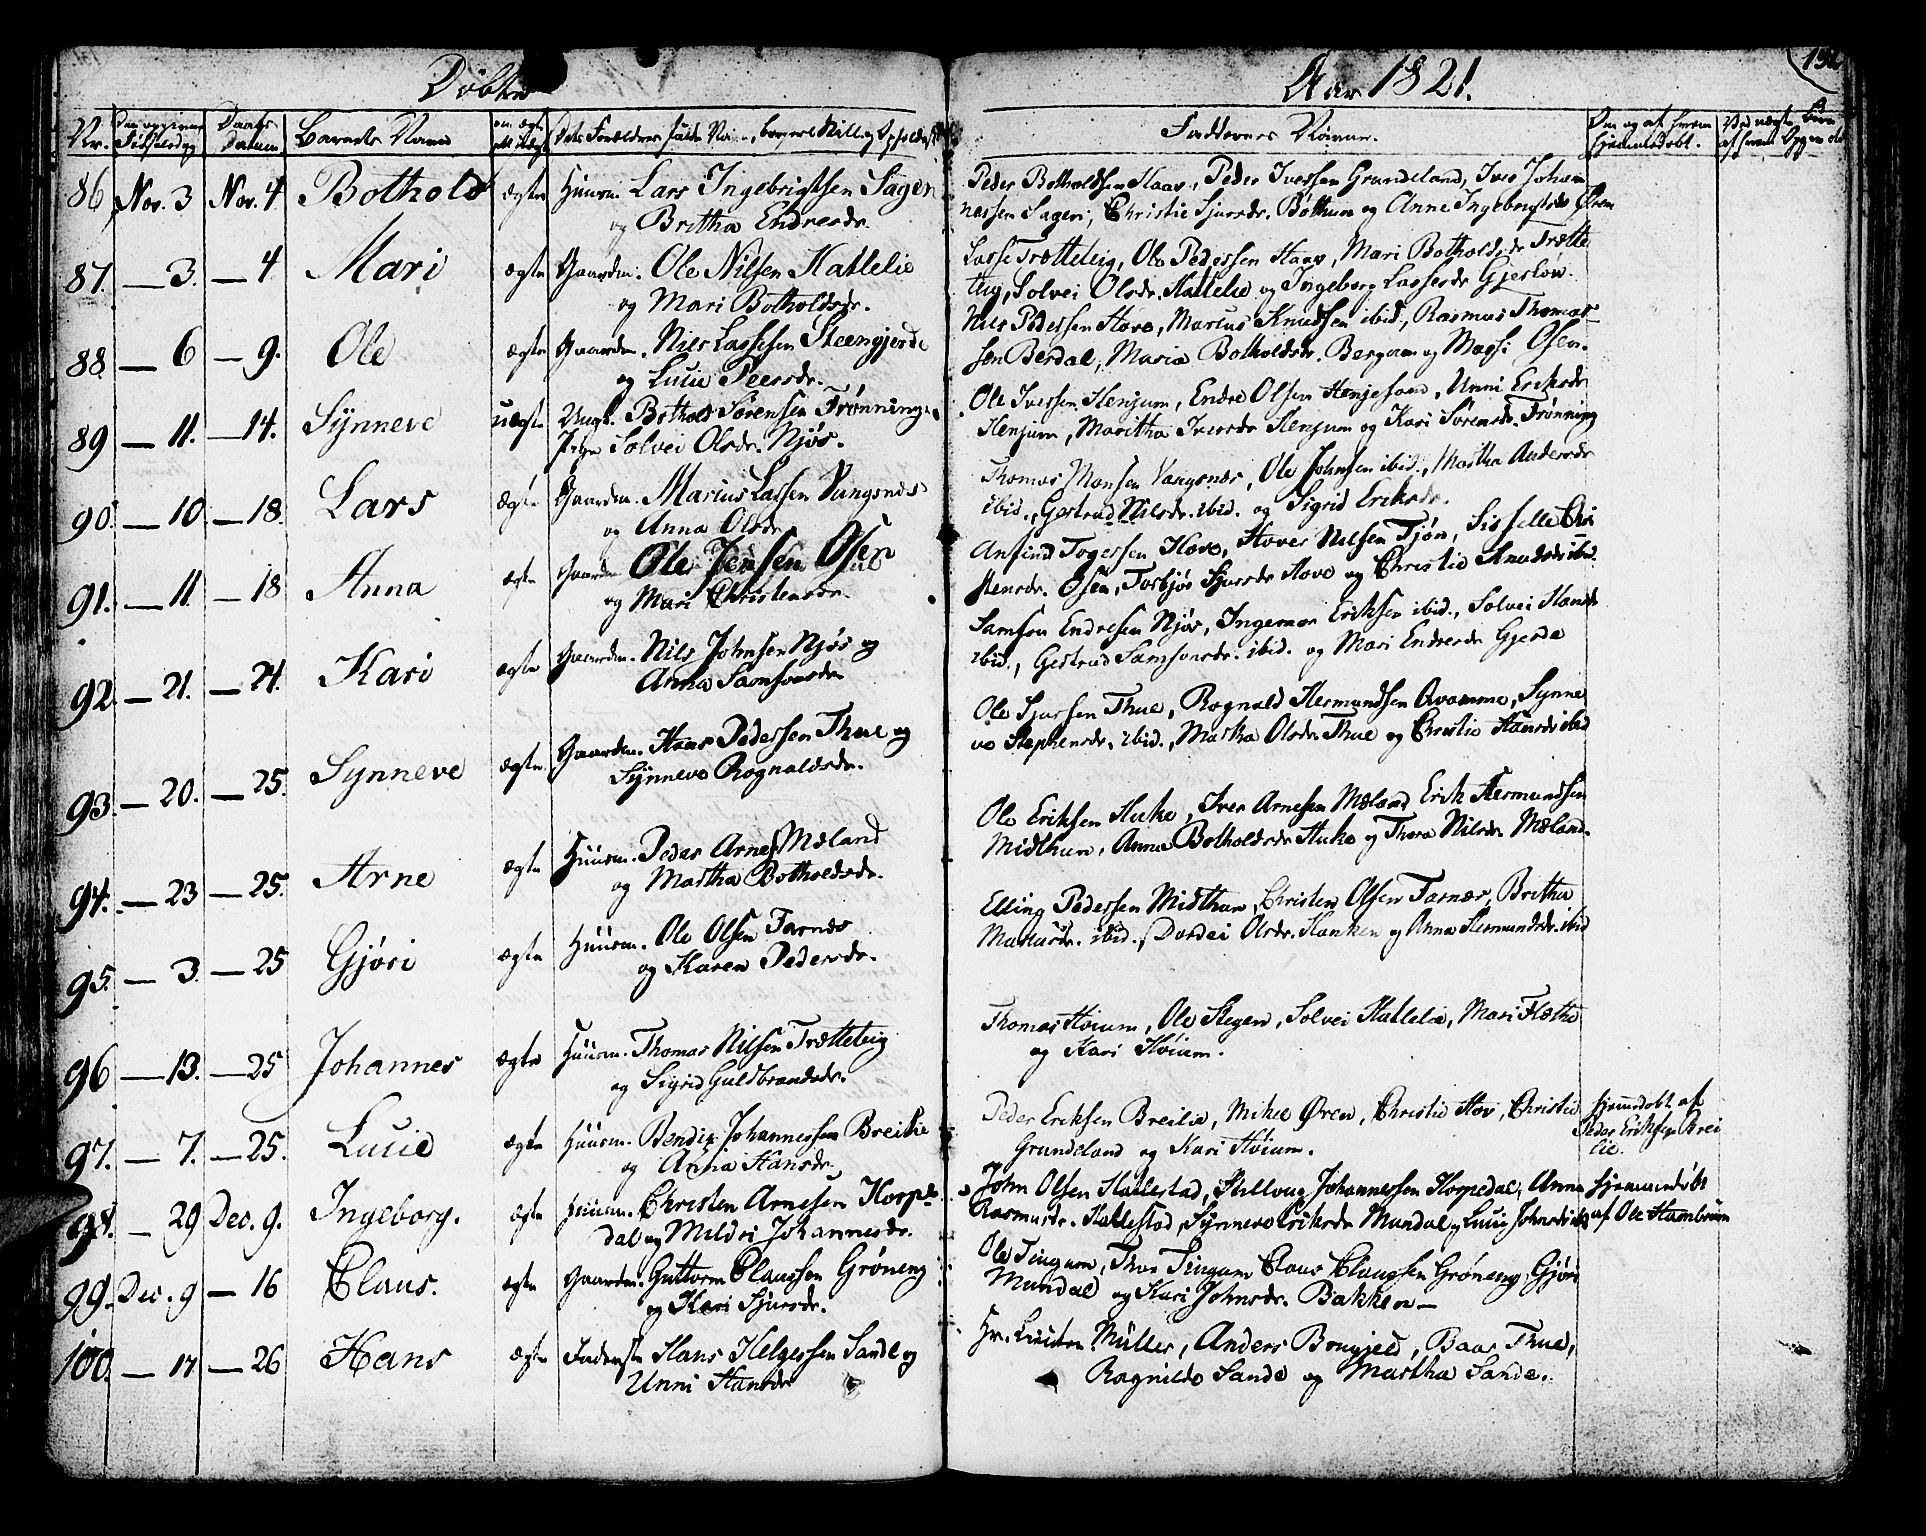 Døbte
Aar 1821.
132
Nr. Daabs Datum Barnets Navn Faddernes Navne.
86 Nov. 3 Nov. 4 Bothold ægte Huusm. Lars Ingebrigtsen Sagen
og Britha Endresdr.
Peder Botholdsen Haav, Peder Iversen Grundeland, Iver Johan
nessen Sagen, Christie Sjursdr. Bøthun og Anne Ingebrigtsdr Øren
87. — 3. — 4 Mari ægte Gaardm. Ole Nilsen Hallelie
og Mari Botholdsdr.
Lasse Trætteteig, Ole Pedersen Haav, Mari Botholdsdr Trætte
teig, Solvei Olsdr. Hallelie og Ingeborg Lassesdr Gjesløv.
88 — 6 — 9. Ole ægte Gaardm. Nils Lassesen Steengjerde
og Lucie Peersdr.
Nils Pedersen Hove, Marius Knudsen ibid., Rasmus Thomas
sen Berdal, Maria Botholdsdr. Bergum og Magsi Osen.
89 — 11. — 14. Synneve uægte Ungk. Bothold Sørensen Frønningen
Pige Solvei Olsdr. Njøs.
Ole Iversen Henjum, Endre Olsen Henjesand, Unni Eriksdr
Henjum, Maritha Iversdr Henjum og Kari Sørensdr. Frønning
90. — 10. — 18. Lars ægte Gaardm. Marius Lassen Vangsnes
og Anna Olsdr.
Thomas Monsen Vangsnes, Ole Johnsen ibid., Martha Andersdr
ibid., Gertrud Nilsdr. ibid. og Sigrid Eriksdr.
91. — 11. — 18 Anna ægte Gaardm. Ole Jensen Osen
og Mari Christensdr.
Anfind Togersen Hove, Hover Nilsen Tjøn, Sisselle Chri
stensdr. Osen, Torbjør Sjursdr Hove og Christie Knudsdr ibid.
92. — 21. — 24. Kari ægte Gaardm. Nils Johnsen Njøs og
Anna Samsonsdr
Samson Endresen Njøs, Ingemar Eriksen ibid., Solvei Hansdr
ibid., Gertrud Samsonsdr. ibid. og Mari Endresdr Gjerde
93. — 20. — 25. Synneve ægte Gaardm. Hans Pedersen Thue og
Synneve Rognaldsdr.
Ole Sjursen Thue, Rognald Hermundsen Avamme, Synne
ve Stephensdr. ibid., Martha Olsdr Thue og Christie Hansdr ibid
94. — 23 — 25. Arne ægte Huusm. Peder Arnes. Mæland
og Martha Botholdsdr.
Ole Eriksen Huke, Iver Arnesen Mæland, Erik Hermundsen
Midthun, Anna Botholdsdr Huke og Thora Nilsdr Mæland.
95. — 3. — 25 Gjøri ægte Huusm. Ole Olsen Farnes
og Karen Pedersdr.
Elling Pedersen Midthun, Christen Olsen Farnæs, Britha
Mariusdr. ibid., Dordei Olsdr. Hanken og Anna Hermundsdr. ibid
96 — 13. — 25 Johannes ægte Huusm. Thomas Nilsen Trætteteig
og Sigrid Guldbrandsdr.
Thomas Høium, Ole Stegen, Solvei Hallelie, Mari Flæthe
og Kari Høium.
97. — 7. — 25. Lucie ægte Huusm. Bendix Johannessen Breilie
og Anna Hansdr.
Peder Eriksen Breilie, Mikel Øren, Christie Hov, Christie
Grundeland og Kari Høium.
hjemdøbt af
Peder Eriksen Brei
lie.
98. — 29 Dec. 9. Ingeborg. ægte Huusm. Christen Arnesen Horpe
dal og Mildri Johannesdr.
John Olsen Hatlestad, Skilloug Johannessen Horpedal, Anna
Rasmusdr. Hatlestad, Synneve Eriksdr Mundal og Lucie Johnsdr ibid
hjemmedøbt
af Ole Hambrum
99. Dec. 9 — 16 Claus. ægte Gaardm. Guttorm Claussen Grøneng
og Kari Sjursdr.
Ole Tingum, Thor Tingum, Claus Claussen Grøneng, Gjøri
Mundal og Kari Johnsdr. Bakken —
100. — 17 — 26 Hans ægte Hans Helgesen Sande og
Unni Hansdr
Hr. Müller, Anders Brugjeld, Baar Thue,
Ragnilde Sande og Martha Sande.